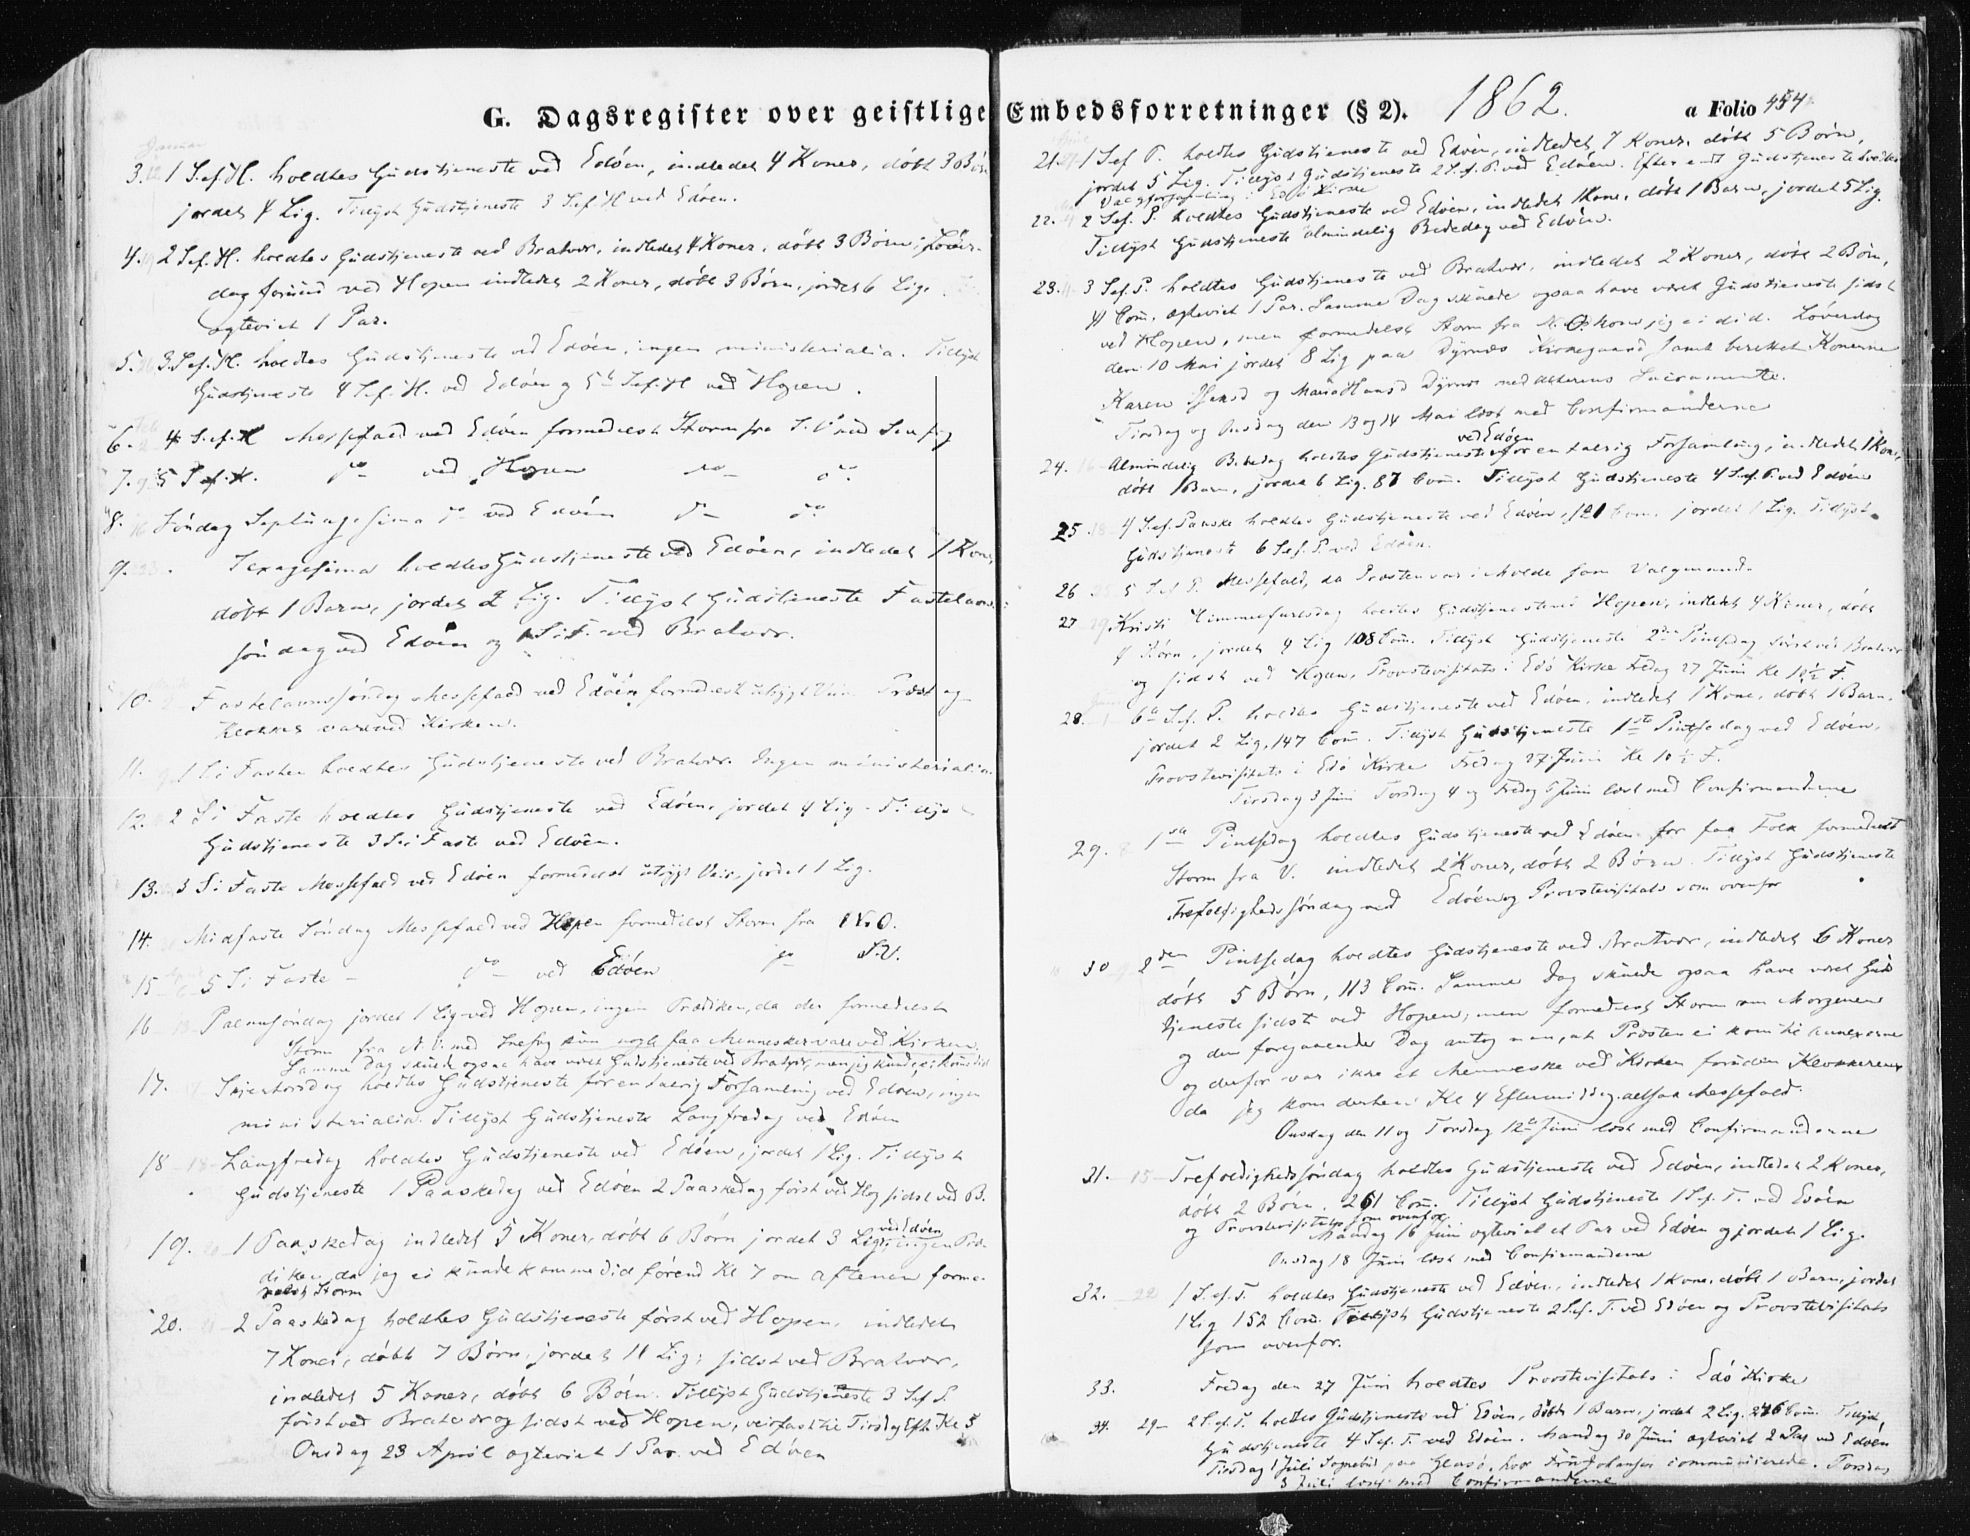 G. Dagsregister over geistlige Embedsforretninger (§ 2). 1862. a Folio 454
3. 1 S. ef. H. holdtes Gudstjeneste ved Edøen, indledet 4 Koner, døbt 3 Børn
jordet 4 Lig. Tillyst Gudstjeneste 3 S. ef. H ved Edøen.
4. 2 S. ef. H. holdtes Gudstjeneste ved Bratvær, indledet 4 Koner, døbt 3 Børn; Løver-
dag forud ved Hopen indledet 2 Koner, døbt 3 Børn, jordet 6 Lig.
ægteviet 1 Par.
5. 3. S. ef. H. holdtes Gudstjeneste ved Edøen, ingen ministerialia. Tillyst
Gudstjeneste 4 S. ef. H. ved Edøen og 5 S. ef. H ved Hopen.
6. 4 S. ef. H Messefald ved Edøen formedelst Storm fra S.V. med
7. 5 S. ef. H. do ved Hopen do do
8. 16 Søndag Septuagesima do ved Edøen do do
9. 23. Sexagesima holdtes Gudstjeneste ved Edøen, indledet 1 Kone
døbt 1 Barn, jordet 2 Lig. Tillyst Gudstjeneste Fastelavns-
søndag ved Edøen og 1 S. i F. ved Bratvær.
10. Fastelavnssøndag Messefald ved Edøen formedelst utrygt Veir. Præst og
Klokker vare ved Kirken.
11. 1 S i Fasten holdtes Gudstjeneste ved Bratvær. Ingen ministerialia
12. 2 S i Faste holdtes Gudstjeneste ved Edøen, jordet 4 Lig. Tillyst
Gudstjeneste 3 S i Faste ved Edøen.
13. 3 S i Faste Messefald ved Edøen formedelst utrygt Veir, jordet 1 Lig.
14. Midfaste Søndag Messefald ved Hopen formedelst Storm fra N.O.
15 5 S i Faste - do ved Edøen do S.V.
16 Palmesøndag jordet 1 Lig ved Hopen, ingen Prædiken, da der formedelst
Storm fra med Snefog kun nogle faa Mennesker vare ved Kirken.
Samme Dag skulde ogsaa have været Gudstjeneste ved Bratvær, men jeg kunde ei komme did
17. Skjertorsdag holdtes Gudstjeneste for en talrig Forsamling ved Edøen, ingen
ministerialia. Tillyst Gudstjeneste Langfredag ved Edøen
18 - 18 - Langfredag holdtes Gudstjeneste ved Edøen, jordet 1 Lig. Tillyst
Gudstjeneste 1 Paaskedag ved Edøen 2 Paaskedag først ved H og sidst ved B.
19. 20 - 1 Paaskedag indledet 5 Koner, døbt 6 Børn jordet 3 Lig ved Edøen, ingen Præ-
diken, da jeg ei kunde komme did førend Kl 7 om aftenen forme-
delst Storm
20. 21 - 2 Paaskedag holdtes Gudstjeneste først ved Hopen, indledet
7 Koner, døbt 7 Børn, jordet 11 Lig; sidst ved Bratvær,
indledet 5 Koner, døbt 6 Børn. Tillyst Gudstjeneste 3 S. ef. P.
først ved Bratvær og sidst ved Hopen, veirfast til Tirsdag Eft. Kl 5
Onsdag 23 April ægteviet 1 Par ved Edøen
21. 27. 1 S. ef P. holdtes Gudstjeneste ved Edøen, indledet 7 Koner, døbt 5 Børn,
jordet 5 Lig. Tillyst Gudstjeneste 2 S. ef. P. ved Edøen. Efter endt Gudstjeneste holdtes
Valgforsamling i Edø Kirke
22. 4 2 S. ef. P. holdtes Gudstjeneste ved Edøen, indledet 1 Kone, døbt 1 Barn, jordet 5 Lig.
Tillyst Gudstjeneste almindelig Bededag ved Edøen.
23. 3 S. ef. P. holdtes Gudstjeneste ved Bratvær, indledet 2 Koner, døbt 2 Børn,
4 Com. ægteviet 1 Par. Samme Dag skulde ogsaa have været Gudstjeneste sidst
ved Hopen, men formedelst Storm fra N.O. kom jeg ei did. Løverdag
den 10 Mai jordet 8 Lig paa Dyrnæs Kirkegaard, samt berettet Konerne
Karen og Maria Dyrnes med Alterens Sacramente.
Tirsdag og Onsdag den 13 og 14 Mai læst med Confirmanderne
24. 16 - Almindelig Bededag holdtes Gudstjeneste ved Edøen for en talrig Forsamling, indledet 1 Kone,
døbt 1 Barn, jordet 6 Lig. 87 Com. Tillyst Gudstjeneste 4 S. ef. P. ved Edøen
25. 18 - 4 S. ef. Paaske holdtes Gudstjeneste ved Edøen, 121 Com. jordet 1 Lig. Tillyst
Gudstjeneste 6 S. ef. P. ved Edøen.
26. 25 5 S. ef P. Messefald, da Provsten var i Molde som Valgmand.
27 29 Kristi Himmelfartsdag holdtes Gudstjeneste ved Hopen, indledet 4 Koner, døbt
4 Børn, jordet 4 Lig 108 Com. Tillyst Gudstjeneste 2den Pintsdag først ved Bratvær
og sidst ved Hopen, Provstevisitats i Edø Kirke Fredag 27 Juni Kl 10½ F.
28. 1 6te S. ef. P. holdtes Gudstjeneste ved Edøen, indledet 1 Kone, døbt 1 Barn,
jordet 2 Lig, 147 Com. Tillyst Gudstjeneste 1ste Pintsedag ved Edøen.
Provstevisitats i Edø Kirke Fredag 27 Juni Kl 10½ F.
Tirsdag 3 Juni Torsdag 4 og Fredag 6 Juni læst med Confirmanderne
29. 8 1ste Pintsdag holdtes Gudstjeneste ved Edøen for faa Folk formedelst
Storm fra V. indledet 2 Koner, døbt 2 Børn. Tillyst Gudstjeneste
Trefoldighedssøndag ved Edøen og Provstevisitats som ovenfor
30 9 2den Pintsedag holdtes Gudstjeneste ved Bratvær, indledet 6 Koner
døbt 5 Børn, 113 Com. Samme Dag skulde ogsaa have været Guds-
tjeneste sidst ved Hopen, men formedelst Storm om Morgenen
og den foregaaende Dag antog man, at Præsten ei kom til annexerne
og derfor var ikke et Menneske ved Kirken foruden Klokkeren
da jeg kom derhen Kl 4 Eftermiddag, altsaa Messefald.
Onsdag den 11 og Torsdag 12te Juni læst med Confirmanderne
31. - 15 - Trefoldighedssøndag holdtes Gudstjeneste ved Edøen, indledet 2 Koner,
døbt 2 Børn, 261 Com. Tillyst Gudstjeneste 1 S. ef. T. ved Edøen
og Provstevisitats som ovenfor
Mandag 16 Juni ægteviet et Par ved Edøen og jordet 1 Lig.
Onsdag 18 Juni læst med Confirmanderne
32. - 22 1 S. ef. T. holdtes Gudstjeneste ved Edøen, indledet 1 Kone, døbt 1 Barn, jordet
1 Lig 152 Com. Tillyst Gudstjeneste 2 S. ef. T. ved Edøen og Provstevisitats
som ovenfor.
33. Fredag den 27 Juni holdtes Provstevisitats i Edø Kirke
34. 29 - 2 S. ef. T. holdtes Gudstjeneste ved Edøen, døbt 1 Barn, jordet 2 Lig. 276 Com. Tillyst,
Gudstjeneste 4 S. ef. T. ved Edøen. Mandag 30 Juni ægteviet 2 Par ved Edøen
Tirsdag 1 Juli Sognebud paa hvor Fru Johansen communicerede. Torsdag
3 Juli læst med Confirmanderne